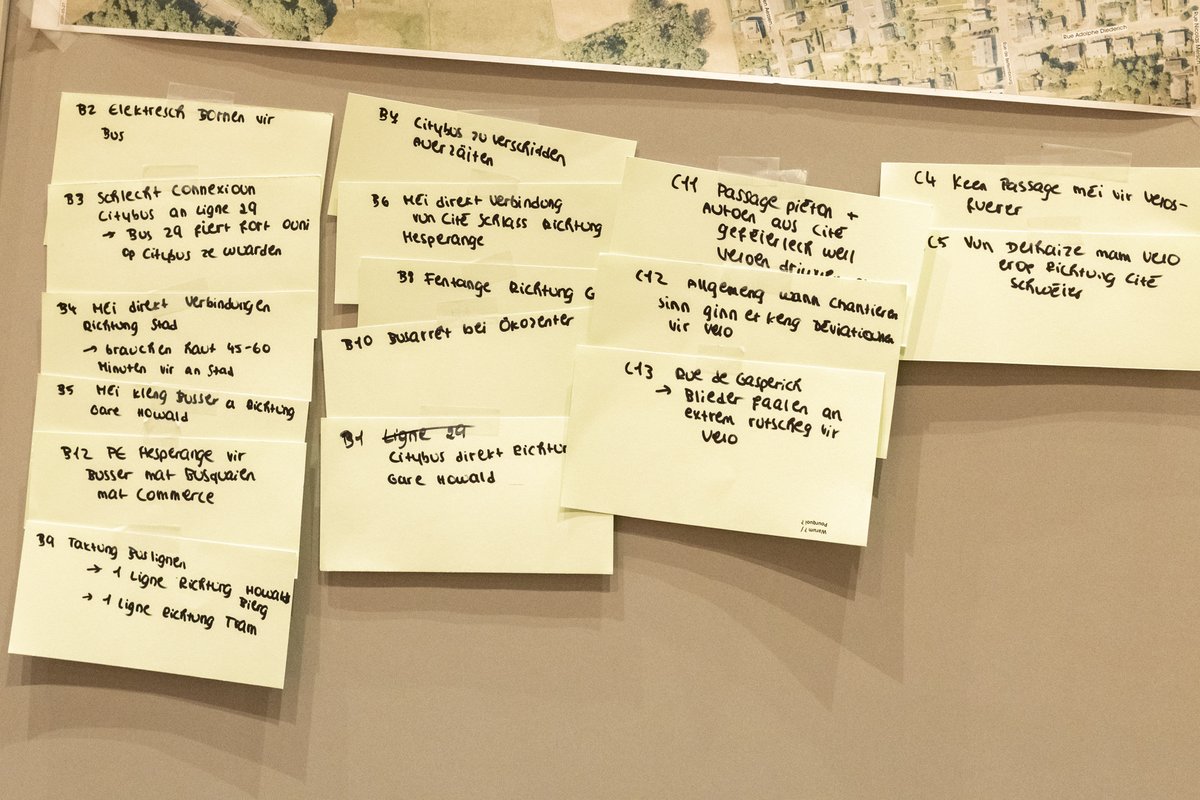 Rue Adolphe Diederich
B2 Elektresch Bornen vir
Bus
B3 Schlecht Connexioun
Citybus an Ligne 29
→ Bus 29 fiert fort ouni
op Citybus ze waarden
B4 Méi direkt Verbindungen
Richtung Stad
→ brauchen haut 45-60
Minuten vir an Stad
B5 Méi kleng Busser a Richtung
Gare Howald
B12 PE Hesperange vir
Busser mat Busquaien
mat Commerce
B9 Taktung Buslignen
→ 1 Ligne Richtung Howald
Bierg
→ 1 Ligne Richtung Tram
Citybus zu verschidden
Auerzäiten
B6 Méi direkt Verbindung
vun Cité Schlass Richtung
Hesperange
B8 Fentange Richtung G
B10 Busarrêt bei Ökozenter
B1 Ligne 29
Citybus direkt Richtun
Gare Howald
C11 Passage piéton +
Autoen aus Cité
geféierlech well
Veloen
C12 Allgemeng wann Chantieren
sinn ginn et keng Déviatiounen
vir Velo
C13 Rue de Gasperich
→ Blieder faalen an
extrem rutscheg vir
Velo
Warum? /
Pourquoi?
C4 Keen Passage méi vir Velos-
fuerer
C5 Vun Delhaize mam Velo
erop Richtung Cité
schwéier